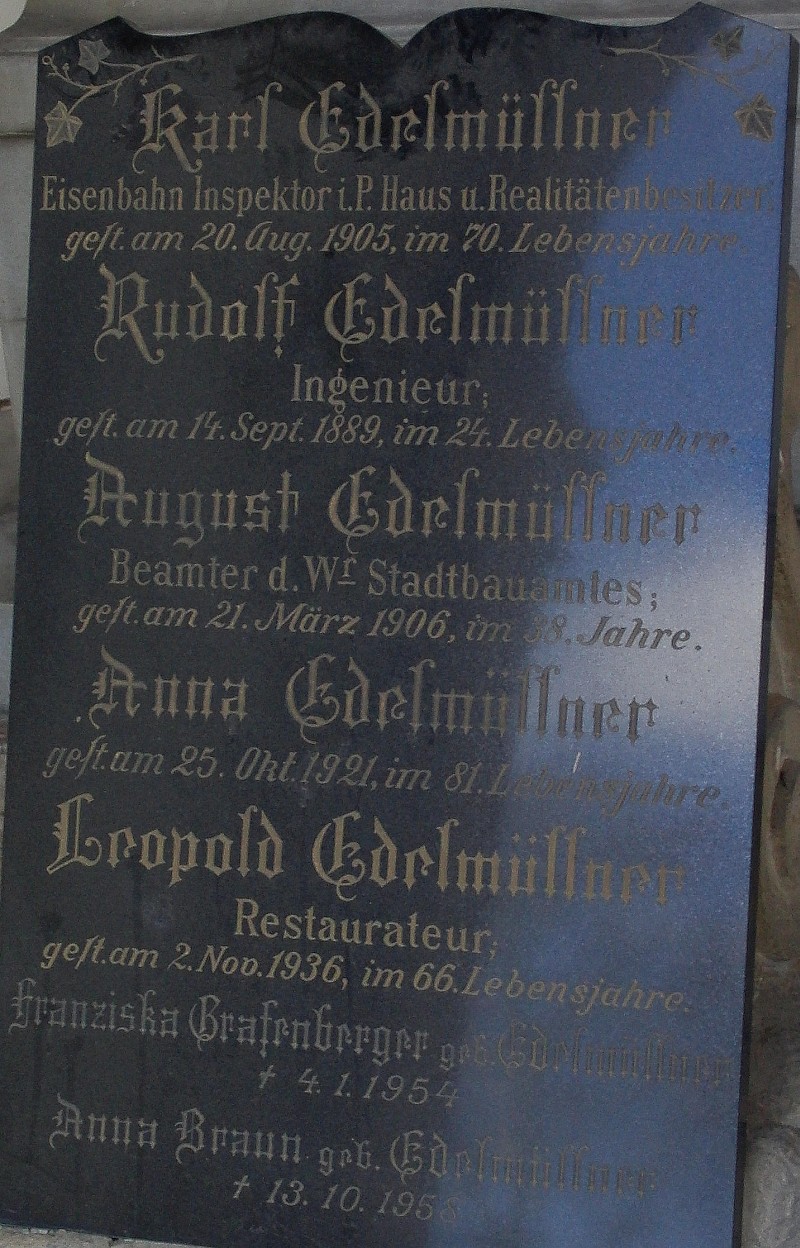 Karl Edelmüllner
Eisenbahn Inspektor i. P. Haus u. Realitätenbesitzer.
gest. am 20. Aug. 1905, im 70. Lebensjahre.
Rudolf Edelmüllner
Ingenieur;
gest. am 14. Sept. 1889, im 24. Lebensjahre.
August Edelmüllner
Beamter d. Wr Stadtbauamtes;
gest. am 21. März 1906, im 38. Jahre.
Anna Edelmüllner
gest. am 25. Okt. 1921, im 81. Lebensjahre.
Leopold Edelmüllner
Restaurateur;
gest. am 2. Nov. 1936, im 66. Lebensjahre.
Franziska Grafenberger geb. Edelmüllner
† 4. 1. 1954
Anna Braun geb. Edelmüllner
† 13. 10. 1958